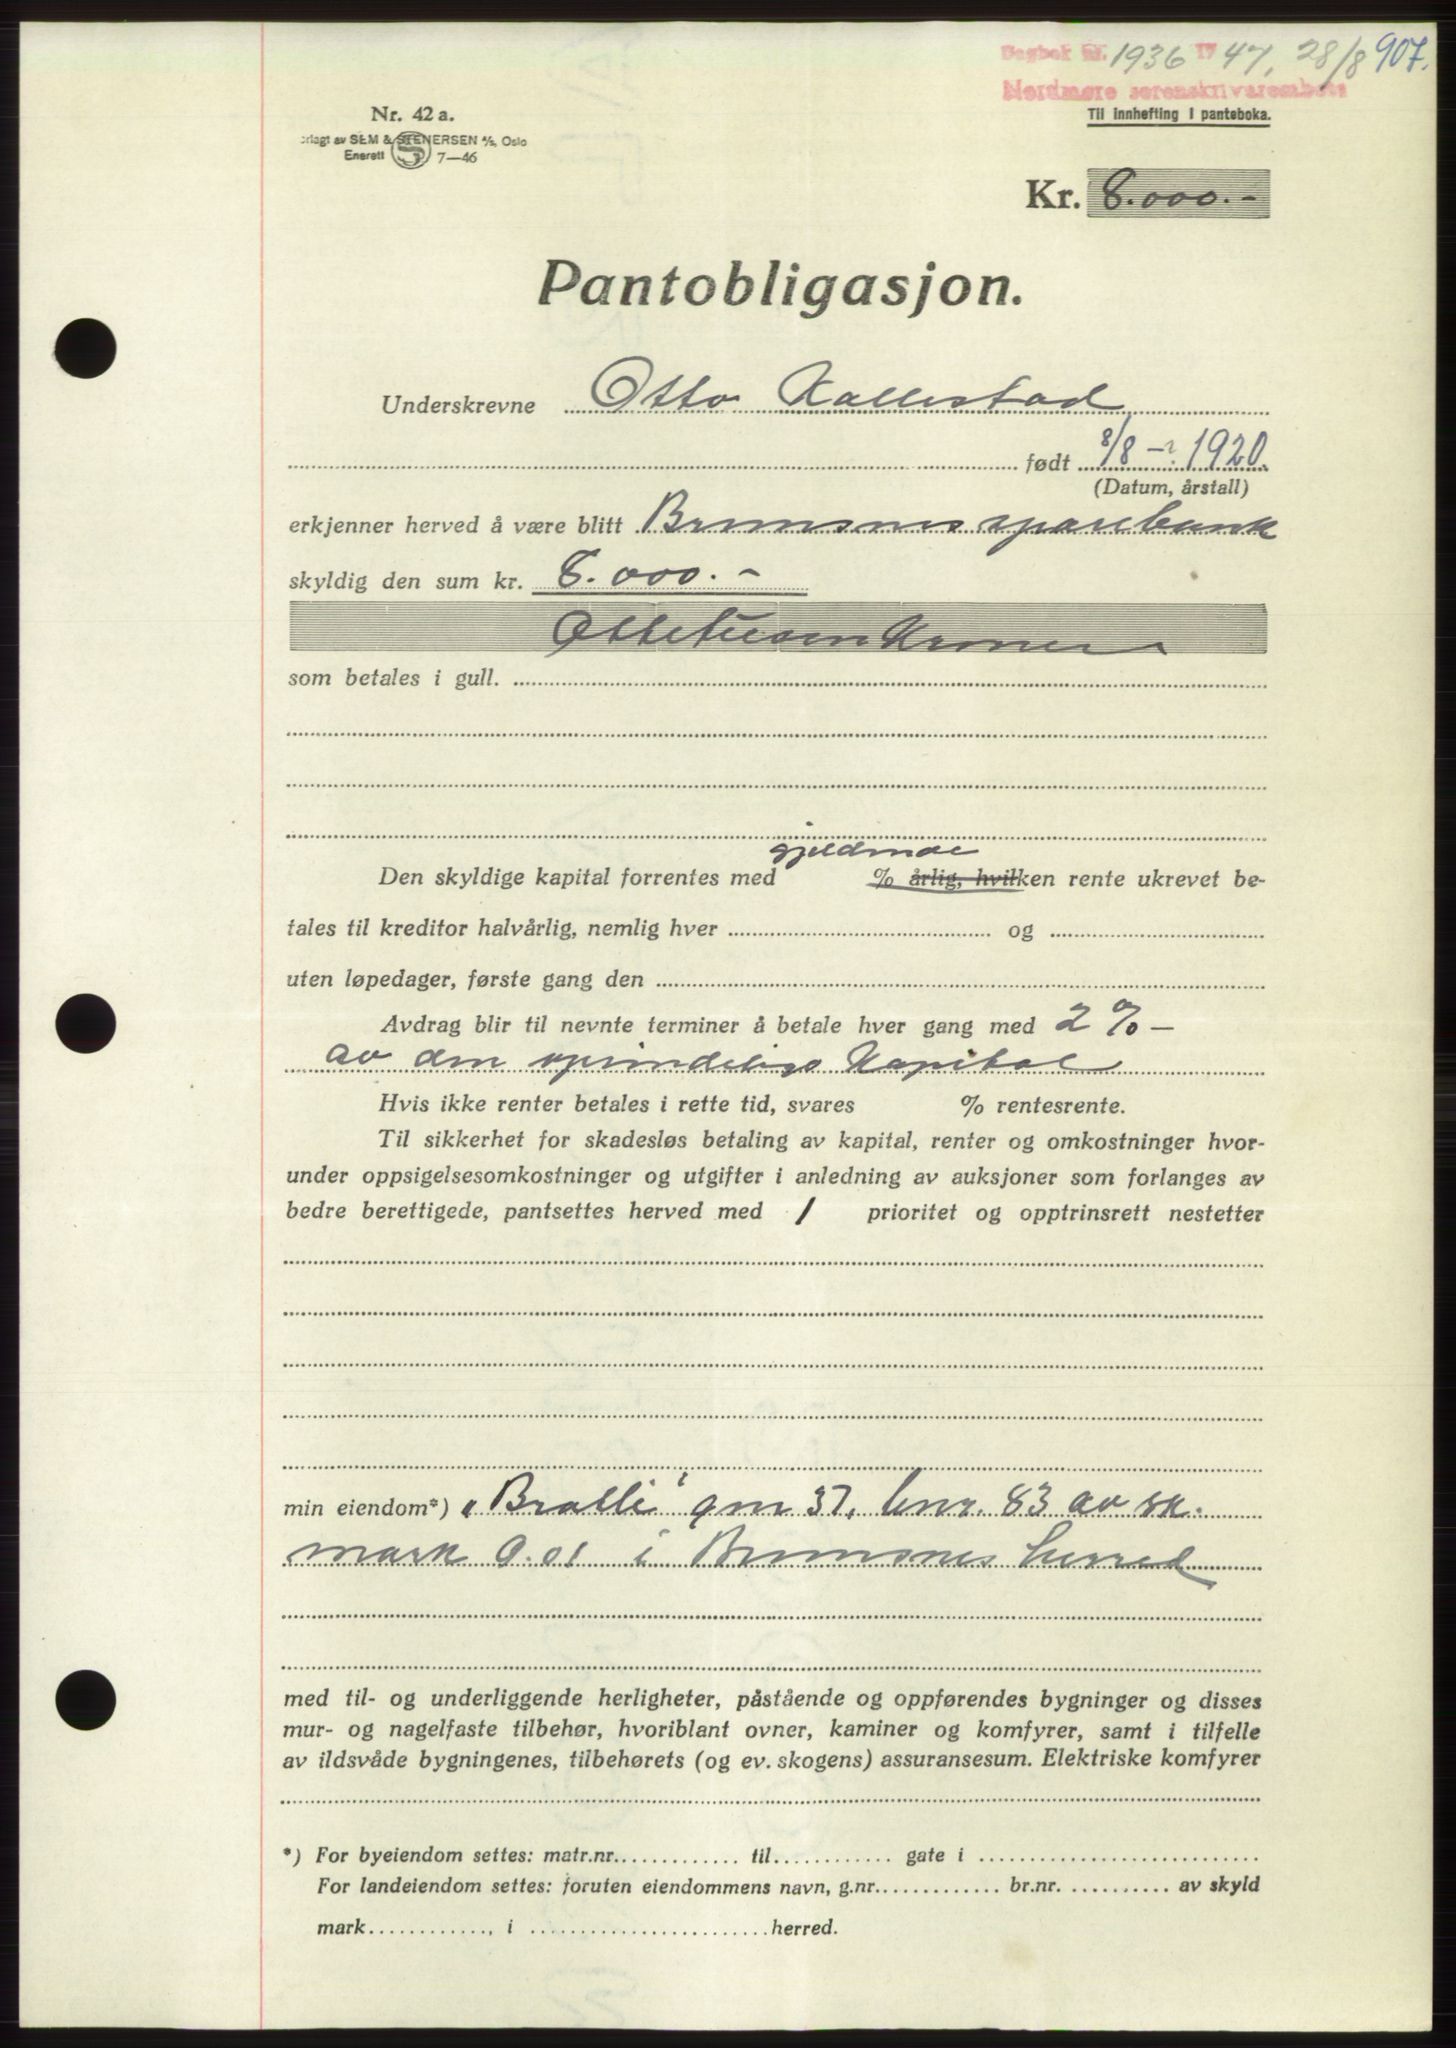 Dagbok nr. 1936 19 47, 28/8 907.
Nordmøre sorenskriverembete
Til innhefting i panteboka.
Nr. 42 a.
rlagt av SEM & STENERSEN A/S, Oslo
Enerett 7—46
Kr. 8.000.-
Pantobligasjon.
Underskrevne Otto Kallestad
født 8/8 - 1920.
(Datum, årstall)
erkjenner herved å være blitt Bremsnes sparebank
skyldig den sum kr. 8.000.-
Ottetusen Kroner
som betales i gull.
gjeldende
Den skyldige kapital forrentes med % årlig, hvilken rente ukrevet be-
tales til kreditor halvårlig, nemlig hver og
uten løpedager, første gang den
Avdrag blir til nevnte terminer å betale hver gang med 2 % —
av den oprindelige Kapital
Hvis ikke renter betales i rette tid, svares % rentesrente.
Til sikkerhet for skadesløs betaling av kapital, renter og omkostninger hvor-
under oppsigelsesomkostninger og utgifter i anledning av auksjoner som forlanges av
bedre berettigede, pantsettes herved med 1 prioritet og opptrinsrett nestetter
min eiendom*) „Bratli" gnr 37, bnr. 83 av sk.
mark 0.01 i Bremsnes herred
med til- og underliggende herligheter, påstående og oppførendes bygninger og disses
mur- og nagelfaste tilbehør, hvoriblant ovner, kaminer og komfyrer, samt i tilfelle
av ildsvåde bygningenes, tilbehørets (og ev. skogens) assuransesum. Elektriske komfyrer
*) For byeiendom settes: matr.nr. til gate i
For landeiendom settes: foruten eiendommens navn, g.nr. br.nr. av skyld
mark , i herred.